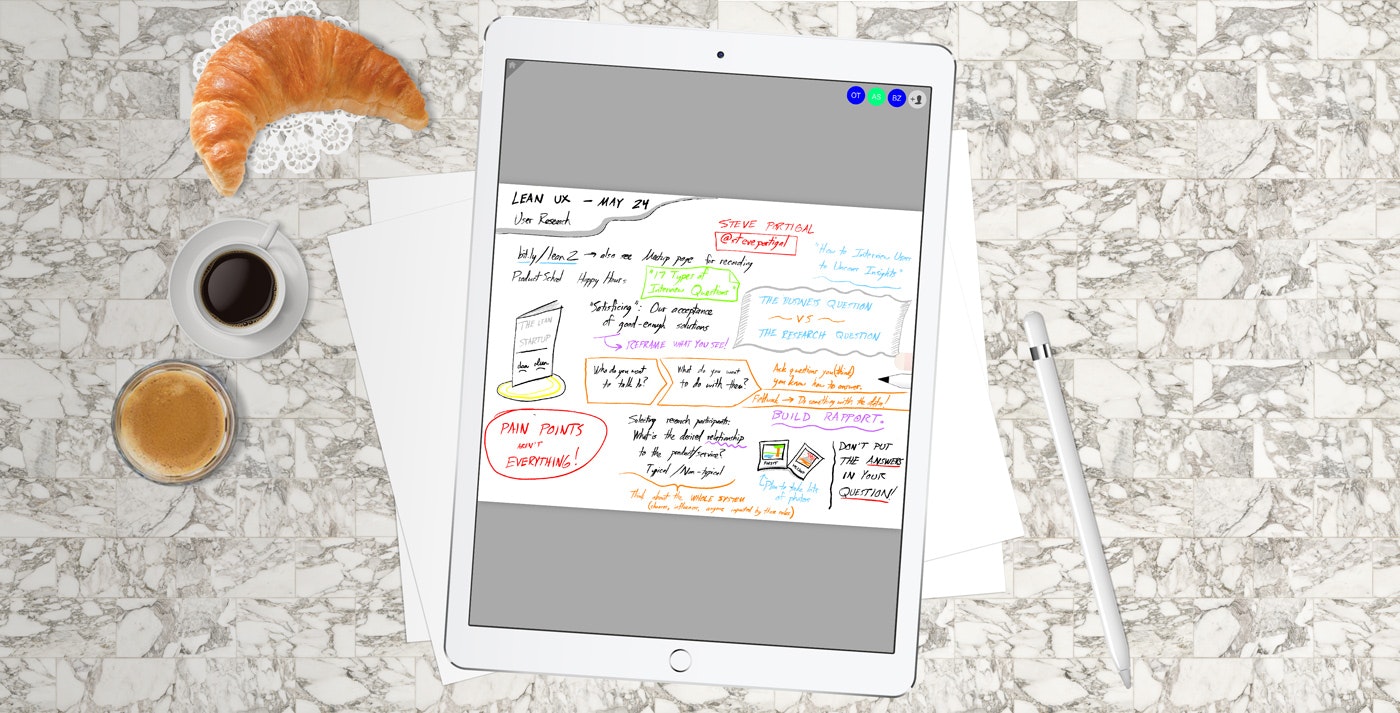 OT AS BZ
LEAN UX – MAY 24
User Research
STEVE PORTIGAL
@steveportigal
"How to Interview Users
to Uncover Insights"
bit.ly/lean2 → also see Meetup page for recording
Product School Happy Hours
"17 Types of
Interview Questions"
THE LEAN
STARTUP
"Satisficing": Our acceptance
of good-enough solutions
REFRAME WHAT YOU SEE!
THE BUSINESS QUESTION
VS
THE RESEARCH QUESTION
Who do you want
to talk to?
What do you want
to do with them?
Ask questions you (think)
you know how to answer.
→ Do something with the data!
BUILD RAPPORT.
PAIN POINTS
AREN'T
EVERYTHING!
Selecting research participants:
What is the desired relationship
to the product/service?
Typical / Non-typical
Think about the WHOLE SYSTEM
(choosers, influencers, anyone impacted by those roles)
to take lots
of photos
DON'T PUT
THE ANSWERS
IN YOUR
QUESTION!